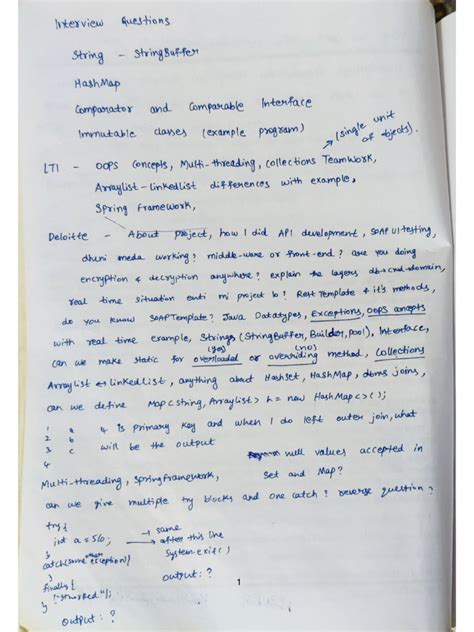 Interview Questions
String - StringBuffer
HashMap
Comparator and Comparable Interface
Immutable classes (example program)
(single unit of objects).
LTI - OOPS Concepts, Multi-threading, Collections TeamWork,
Arraylist - linkedlist differences with example,
Spring framework,
Deloitte - About project, how I did API development, SOAP UI testing,
dheni meda working? middle-ware or front-end? are you doing
encryption & decryption anywhere? explain the layers db crud domain,
real time situation enti mi project lo? RestTemplate & it's methods,
do you know SOAPTemplate? Java Datatypes, Exceptions, OOPS concepts
with real time example, Strings (StringBuffer, Builder, pool), Interface,
(yes) (no)
can we make static for overloaded or overriding method, Collections
Arraylist ↔ linkedlist, anything about HashSet, HashMap, dbms joins,
can we define Map<string, Arraylist> h = new HashMap<>();
1 a 4 is primary key and when I do left outer join, what
2 b will be the output
3 c null values accepted in
4 Set and Map?
Multi-threading, Springframework,
can we give multiple try blocks and one catch? reverse question?
try{
int a = 5/0; → same
→ after this line
} System.exit()
catch(some other exception){
} output: ?
finally{
"started");
}
output: ?
1